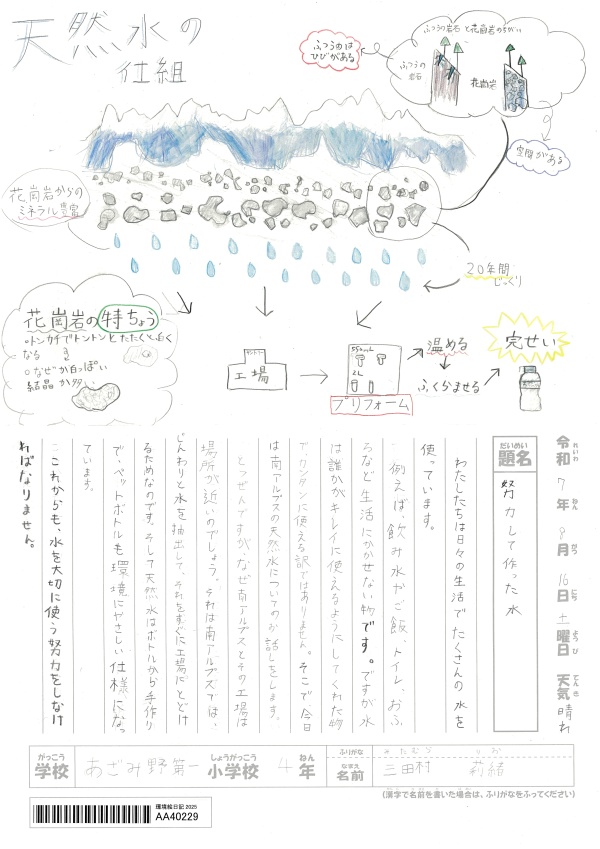 天然水の
仕組
ふつうの岩石と花崗岩のちがい
ふつうのは
ひびがある
ふつうの
岩石
花崗岩
空間がある
花崗岩からの
ミネラル豊富
20年間
じっくり
花崗岩の特ちょう
○トンカチでトントンとたたくと白く
なる
○なぜか白っぽい
結晶が多い
サントリー
工場
550mL
2L
プリフォーム
温める
ふくらませる
完せい
令和7年8月16日土曜日 天気晴れ
れいわ ねん がつ にち ようび てんき
だいめい
題名 努力して作った水
わたしたちは日々の生活でたくさんの水を
使っています。
例えば、飲み水がご飯、トイレ、おふ
ろなど生活にかかせない物です。ですが水
は誰かがキレイに使えるようにしてくれた物
で、カンタンに使える訳ではありません。そこで、今日
は南アルプスの天然水についてのお話しをします。
とつぜんですが、なぜ南アルプスとその工場は
場所が近いのでしょう。それは南アルプスでは、
じんわりと水を抽出して、それをすぐに工場にとどけ
るためなのです。そして天然水はボトルから手作り
で、ペットボトルも環境にやさしい仕様になっ
ています。
これからも、水を大切に使う努力をしなけ
ればなりません。
がっこう しょうがっこう ねん
学校 あざみ野第一 小学校 4年
ふりがな みたむら りお
なまえ
名前 三田村 莉緒
(漢字で名前を書いた場合は、ふりがなをふってください)
環境絵日記2025
AA40229